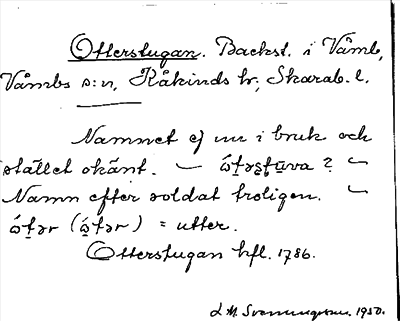 Otterstugan. Backst. i Våmb,
Våmbs s:n, Kåkinds hr, Skarab. l.
Namnet ej nu i bruk och
stället okänt. — ó̤tərstu̲va ? —
Namn efter soldat troligen. —
ó̤tər (ó̤tər) = utter.
Otterstugan hfl. 1786.
L M. Svenungsson. 1950.